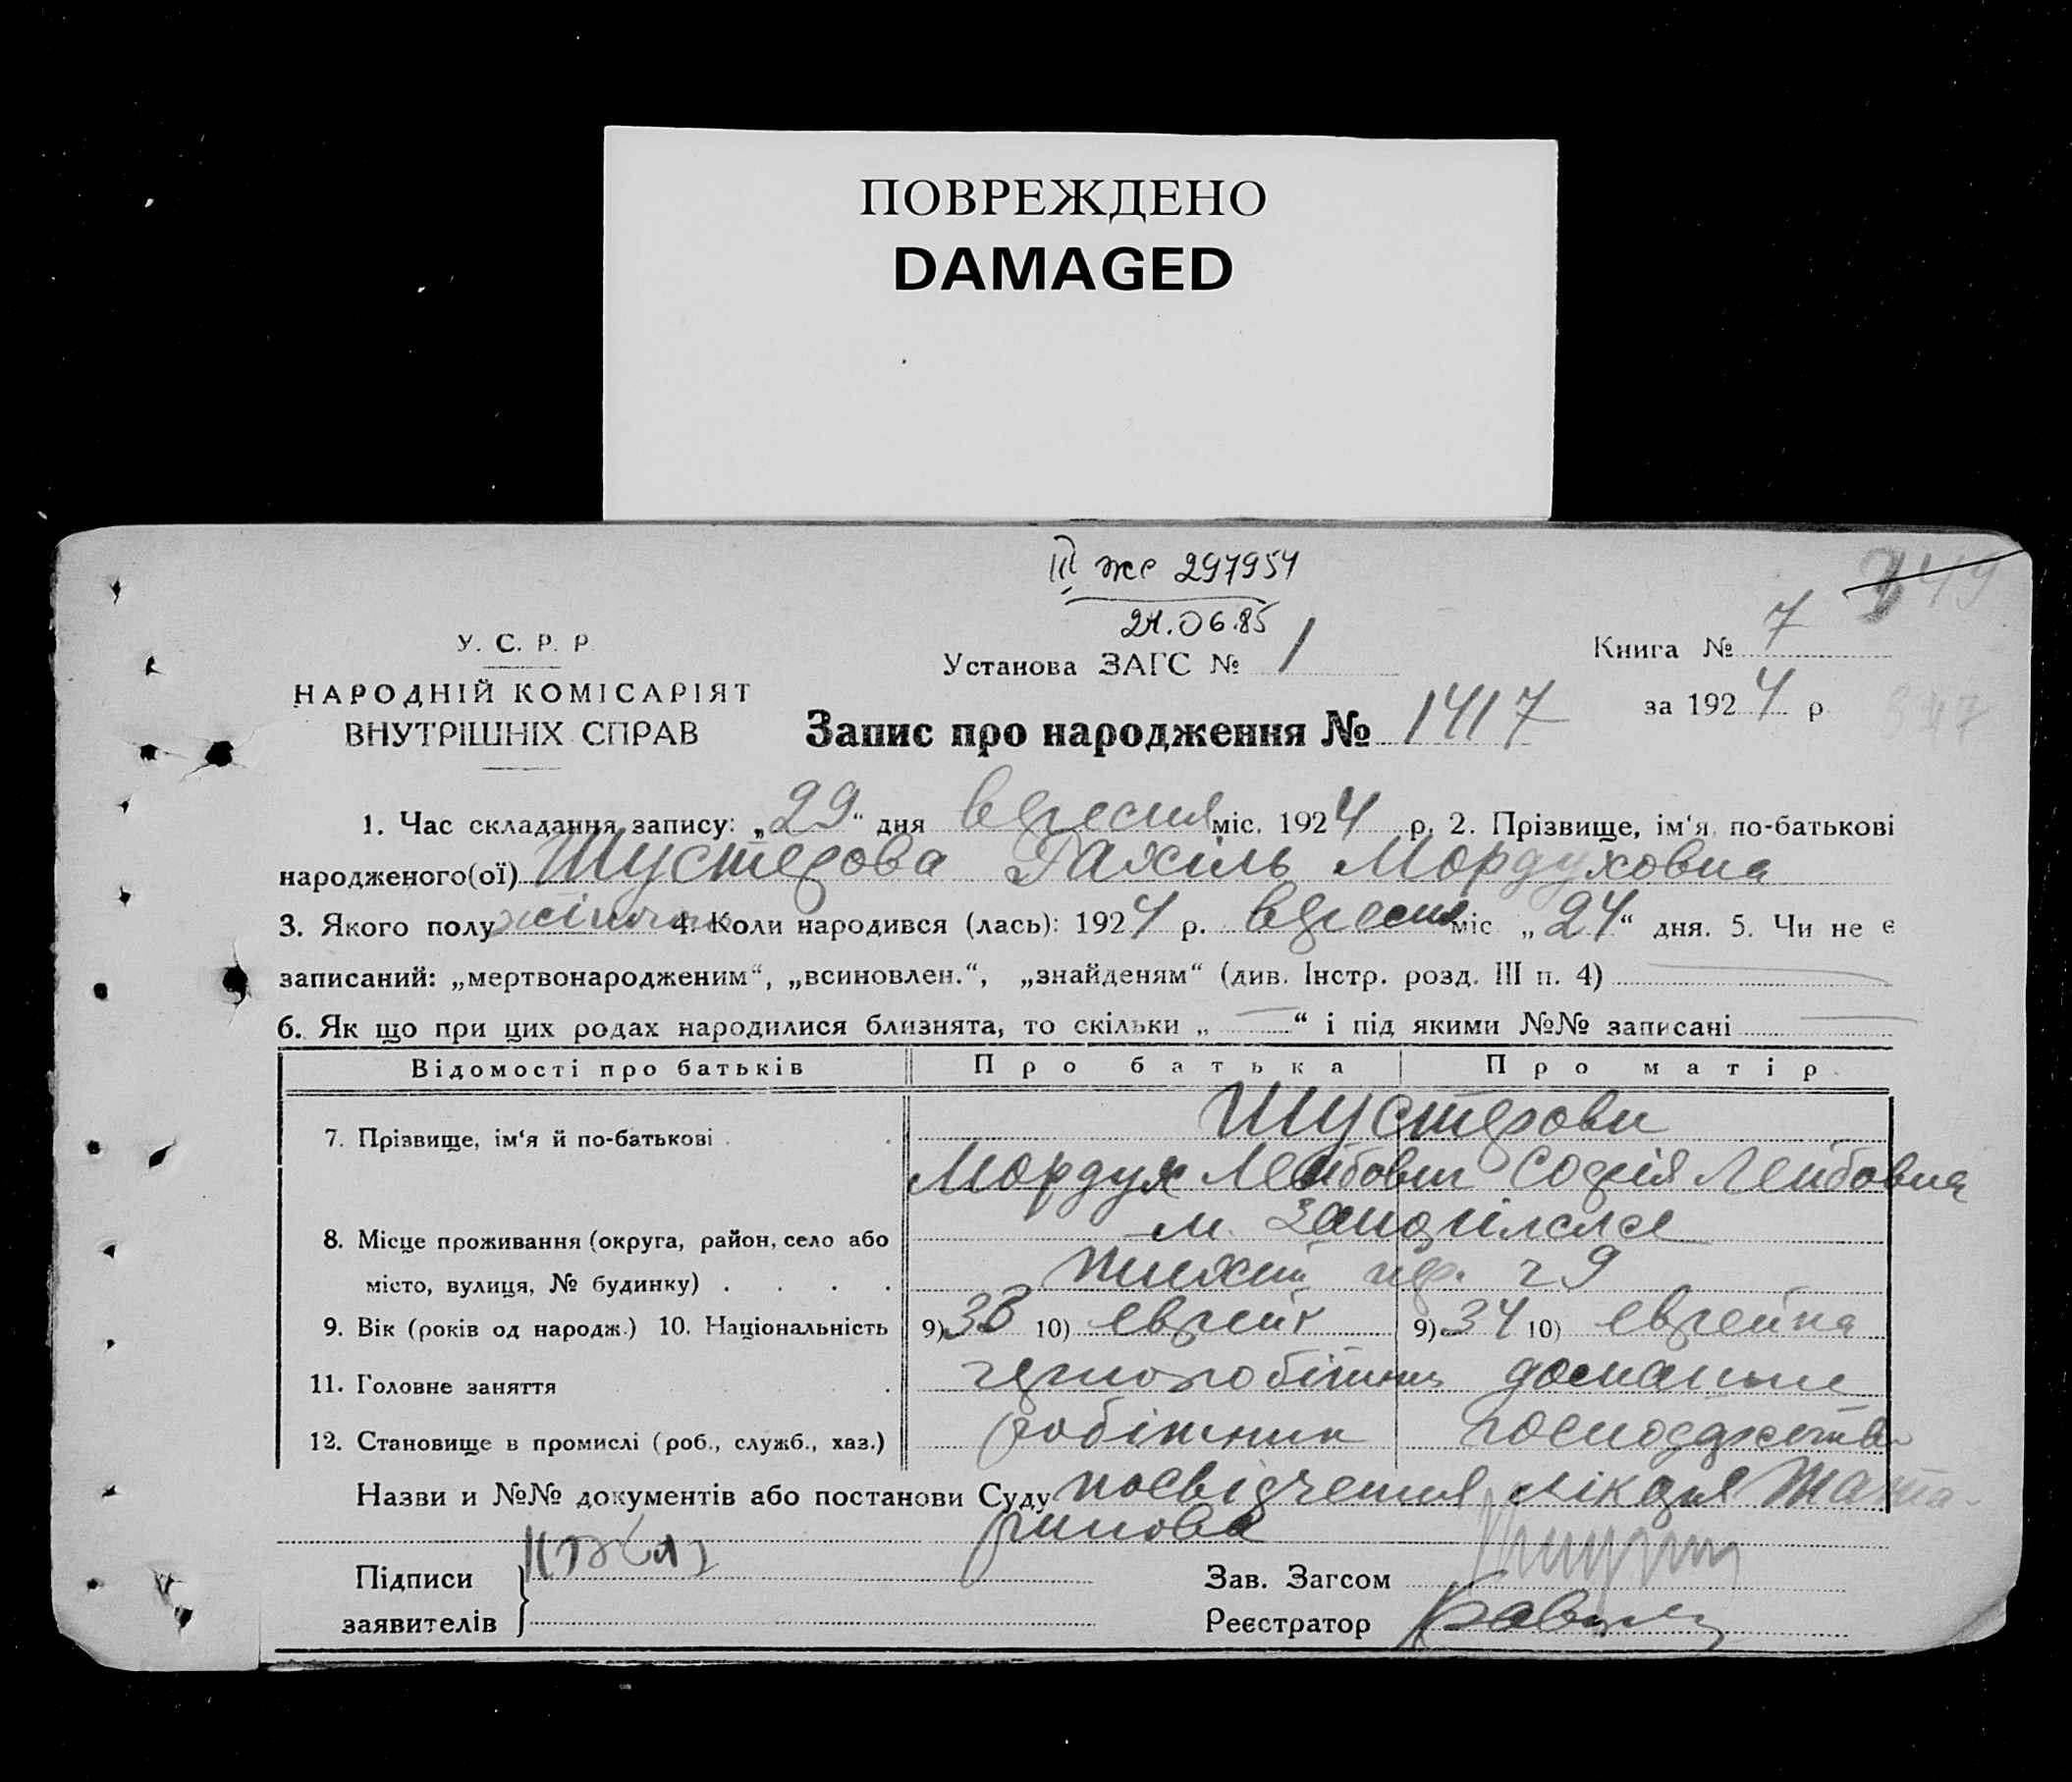 ПОВРЕЖДЕНО
DAMAGED
III же 297954
24.06.85
349
У. С. Р. Р.
НАРОДНІЙ КОМІСАРІЯТ
ВНУТРІШНІХ СПРАВ
Установа ЗАГС № 1
Книга № 7
за 1924 р.
347
Запис про народження № 1417
1. Час складання запису: „29“ дня вересня міс. 1924 р. 2. Прізвище, ім‘я, по-батькові
народженого(ої) Шустерова Рахіль Мордуховна
3. Якого полу жіноч 4. Коли народився (лась): 1924 р. вересня міс „24“ дня. 5. Чи не є
записаний: „мертвонародженим“, „всиновлен.“, „знайденям“ (див. Інстр. розд. III п. 4)
6. Як що при цих родах народилися близнята, то скільки „ — “ і під якими №№ записані —
Відомості про батьків Про батька Про матір
7. Прізвище, ім‘я й по-батькові Шустерови
Мордух Лейбович Софія Лейбовна
8. Місце проживання (округа, район, село або м.
місто, вулиця, № будинку) . . . . Тихий ч 9
9. Вік (років од народж.) 10. Національність 9) 38 10) еврей 9) 34 10) еврейка
11. Головне заняття черноробітник домашнє
12. Становище в промислі (роб., служб., хаз.) робітник господарство
Назви и №№ документів або постанови Суду посвідчення лікаря
Підписи
заявителів
Зав. Загсом
Реєстратор